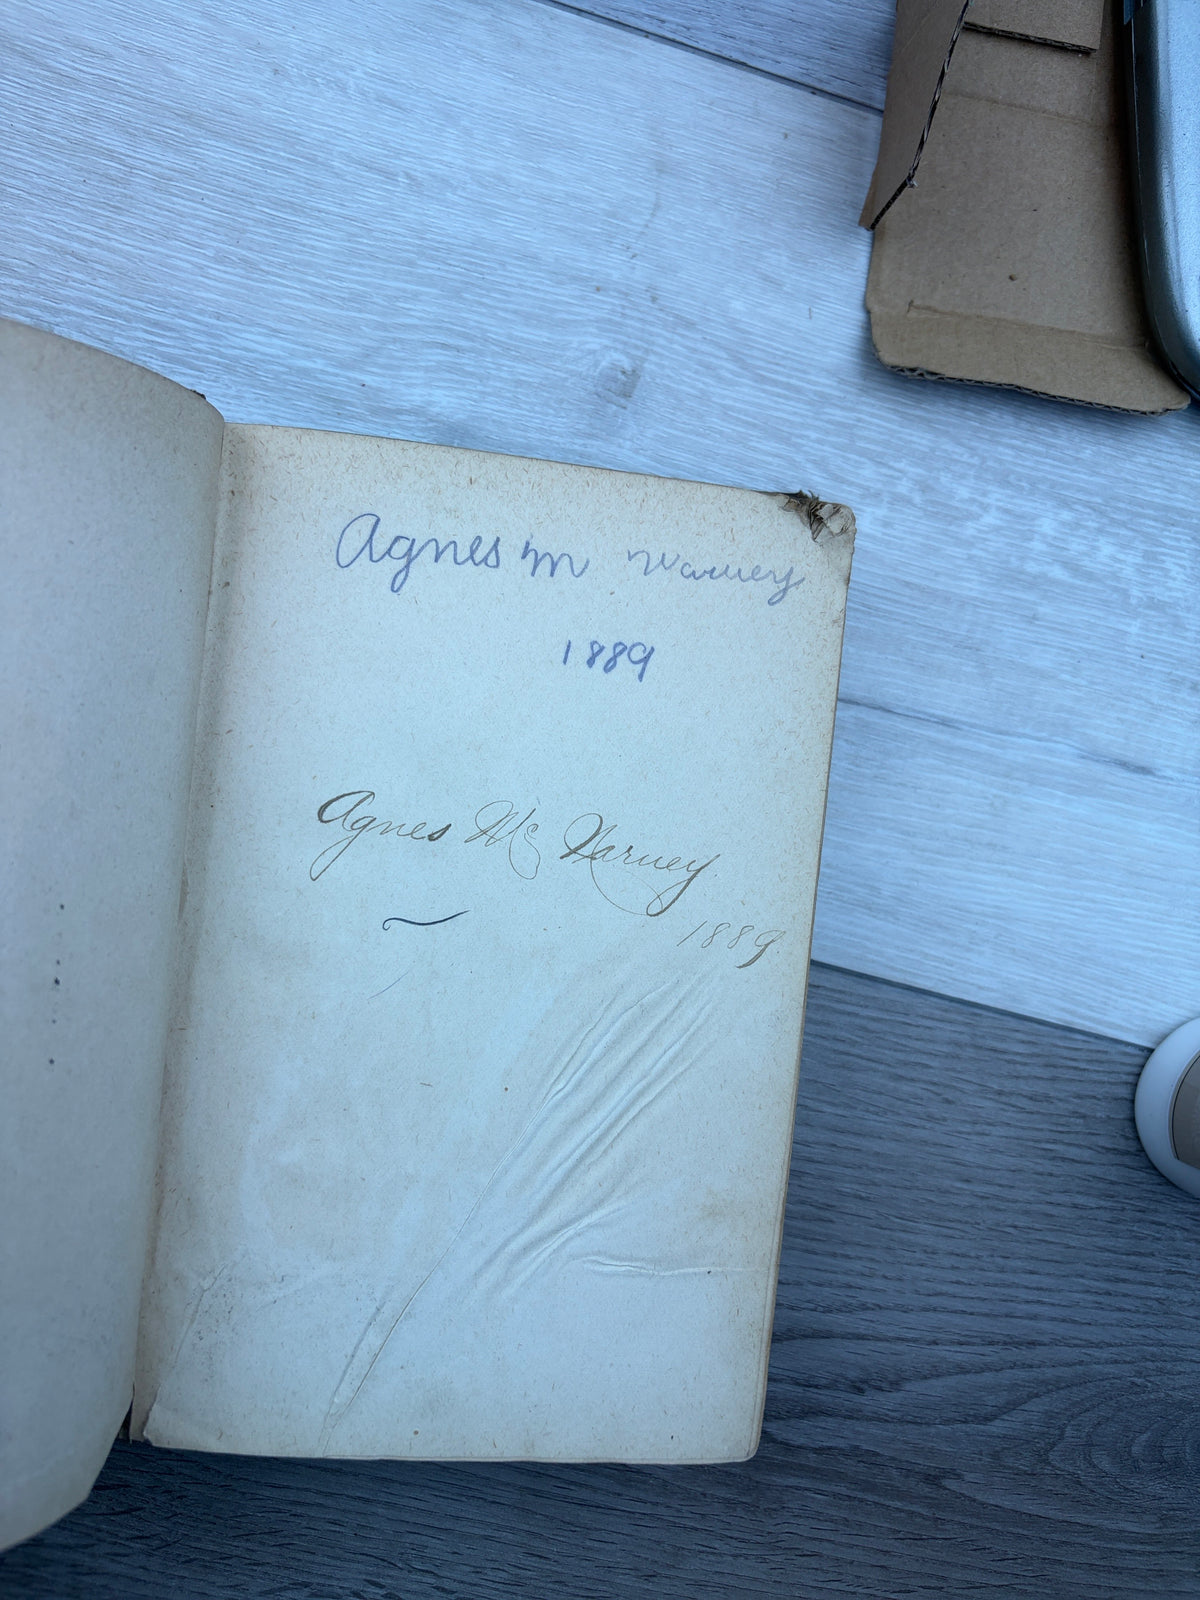 Agnes M Warvey
1889
Agnes Mc Harvey
1889